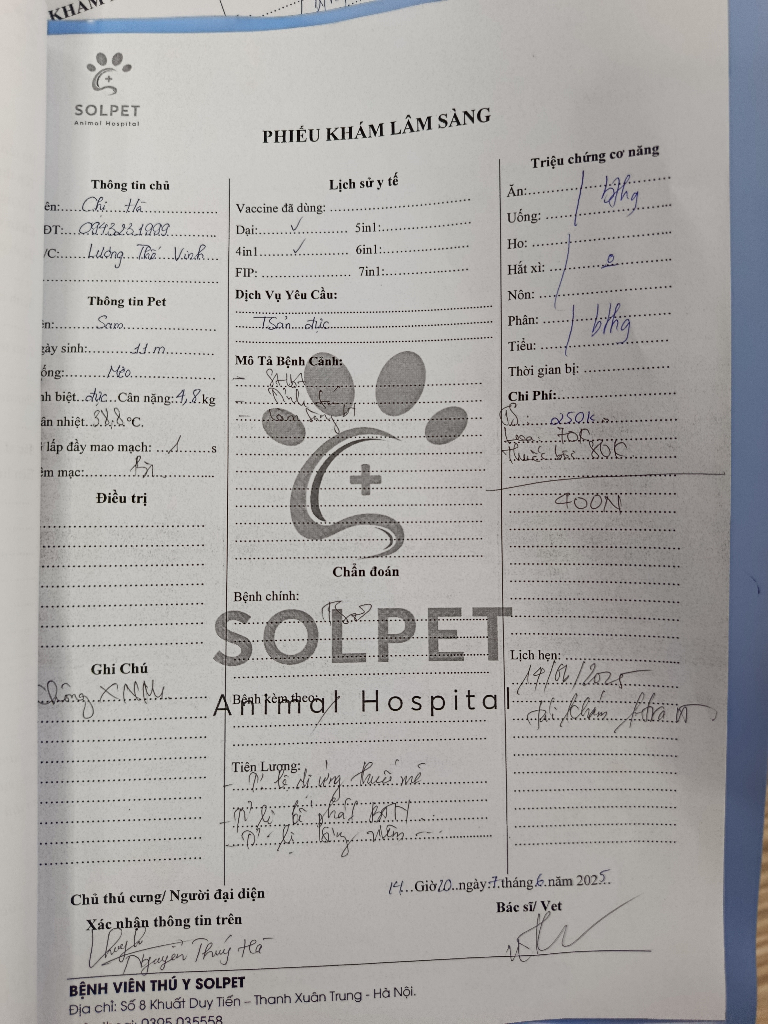 KHÁM
SOLPET
Animal Hospital
PHIẾU KHÁM LÂM SÀNG
Thông tin chủ
ên: Chị Hà
ĐT: 0943231999
/C: Lương Thế Vinh
Thông tin Pet
n: Saro
gày sinh: 11m
ống: Mèo
nh biệt đực Cân nặng: 4,8 kg
ân nhiệt 38.8 °C.
lấp đầy mao mạch: 1 s
êm mạc:
Điều trị
Ghi Chú
không XNM
Lịch sử y tế
Vaccine đã dùng:
Dại: ✓ 5in1:
4in1 ✓ 6in1:
FIP: 7in1:
Dịch Vụ Yêu Cầu:
Tsản đực
Mô Tả Bệnh Cảnh:
Chẩn đoán
Bệnh chính:
SOLPET
Bệnh kèm theo:
Animal Hospital
Tiên Lượng:
- Tỉ lệ dị ứng thuốc mê
Triệu chứng cơ năng
Ăn: bthg
Uống:
Ho:
Hắt xì: 0
Nôn:
Phân: bthg
Tiểu:
Thời gian bị:
Chi Phí:
250k
70k
80k
400N
Lịch hẹn:
14/06/2025
tái khám
14 Giờ 20 ngày: 7 tháng 6 năm 2025
Chủ thú cưng/ Người đại diện
Bác sĩ/ Vet
Xác nhận thông tin trên
Nguyễn Thúy Hà
BỆNH VIÊN THÚ Y SOLPET
Địa chỉ: Số 8 Khuất Duy Tiến – Thanh Xuân Trung - Hà Nội.
0395 035558